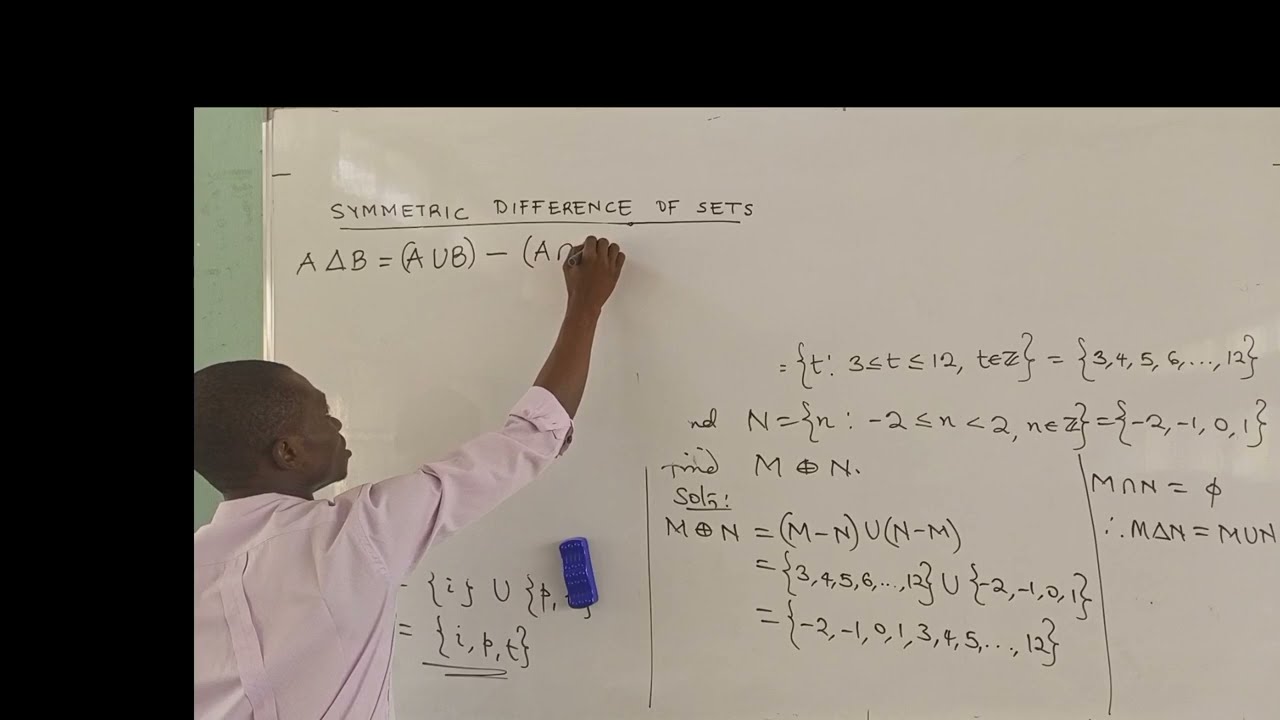 SYMMETRIC DIFFERENCE OF SETS
A Δ B = (A ∪ B) − (A ∩
= {t : 3 ≤ t ≤ 12, t ∈ ℤ} = {3, 4, 5, 6, ..., 12}
nd N = {n : -2 ≤ n < 2, n ∈ ℤ} = {-2, -1, 0, 1}
find M ⊕ N.
Soln:
M ⊕ N = (M − N) ∪ (N − M)
= {3, 4, 5, 6, ..., 12} ∪ {-2, -1, 0, 1}
= {-2, -1, 0, 1, 3, 4, 5, ..., 12}
M ∩ N = ϕ
∴ M Δ N = M ∪ N
= {i} ∪ {p, }
= {i, p, t}